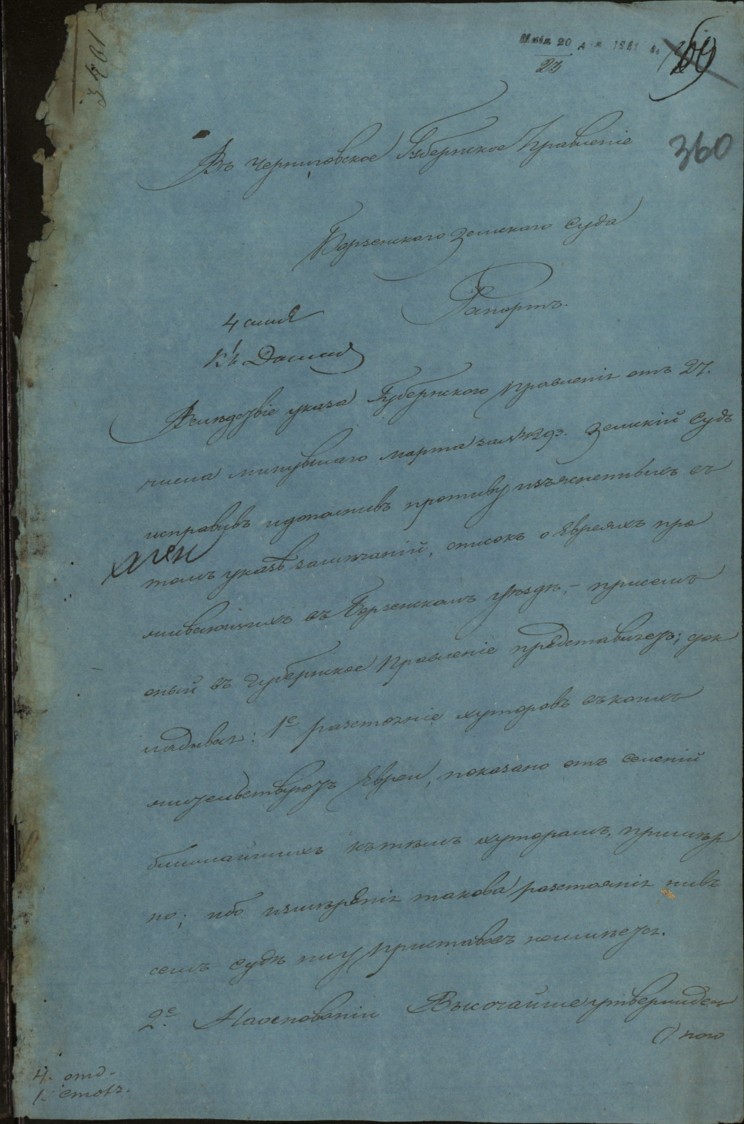 360
Въ Черниговское Губернское Правленіе
Борзенскаго Земскаго Суда
Рапортъ.
Вслѣдствіе указа Губернскаго Правленія отъ 27.
числа минувшаго марта за № Земскій Судъ
исправивъ и дополнивъ противу изъясненныхъ въ
томъ указѣ замѣчаній, списокъ о Евреяхъ про
живающихъ въ Борзенскомъ уѣздѣ, – присемъ
оный въ Губернское Правленіе представляетъ; док
ладывая: 1е разстояніе хуторовъ въ коихъ
жительствуютъ Евреи, показано отъ селеній
ближайшихъ къ тѣмъ хуторамъ, примѣр
но; ибо измѣренія такова разстоянія нивъ
семъ Судѣ ниу Приставовъ неимѣется.
2е. Наоснованіи Высочайше утвержден
наго
4. отд.
1. столъ.